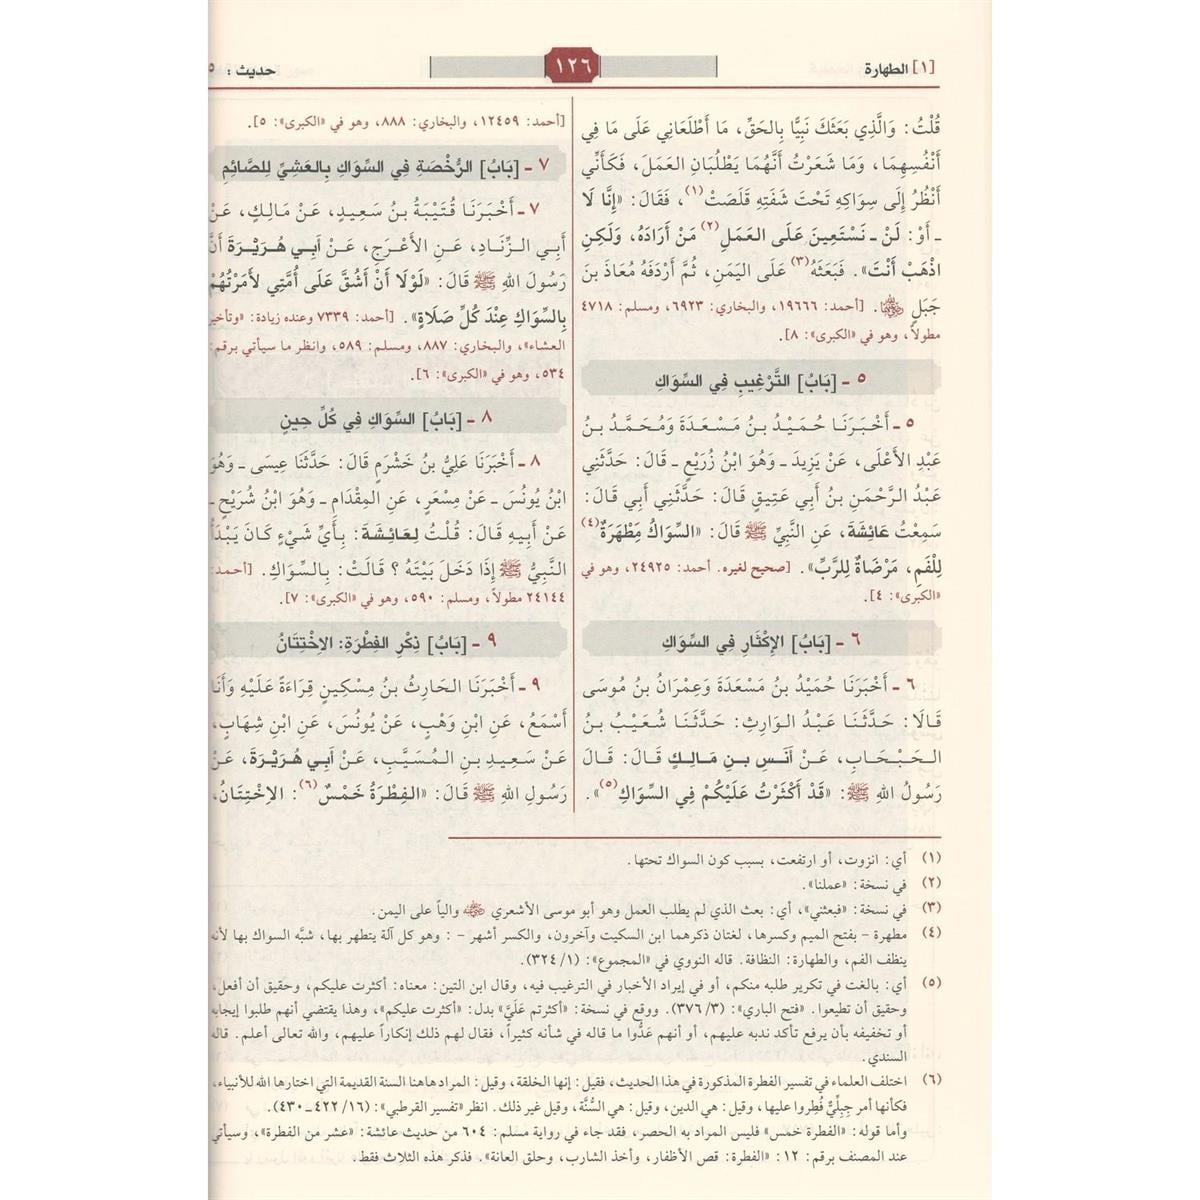 [١] الطهارة
١٢٦
حديث : ٥
قُلْتُ: وَالَّذِي بَعَثَكَ نَبِيًّا بِالحَقِّ، مَا أَطْلَعَانِي عَلَى مَا فِي
أَنْفُسِهِمَا، وَمَا شَعَرْتُ أَنَّهُمَا يَطْلُبَانِ العَمَلَ، فَكَأَنِّي
أَنْظُرُ إِلَى سِوَاكِهِ تَحْتَ شَفَتِهِ قَلَصَتْ(١)، فَقَالَ: «إِنَّا لَا
ـ أَوْ: لَنْ ـ نَسْتَعِينَ عَلَى العَمَلِ(٢) مَنْ أَرَادَهُ، وَلَكِنِ
اذْهَبْ أَنْتَ». فَبَعَثَهُ(٣) عَلَى اليَمَنِ، ثُمَّ أَرْدَفَهُ مُعَاذَ بنَ
جَبَلٍ رضي الله عنه. [أحمد: ١٩٦٦٦، والبخاري: ٦٩٢٣، ومسلم: ٤٧١٨
مطولاً، وهو في «الكبرى»: ٨].
٥ ـ [بَابُ] التَّرْغِيبِ فِي السِّوَاكِ
٥ ـ أَخْبَرَنَا حُمَيْدُ بنُ مَسْعَدَةَ وَمُحَمَّدُ بنُ
عَبْدِ الأَعْلَى، عَنْ يَزِيدَ ـ وَهُوَ ابْنُ زُرَيْعٍ ـ قَالَ: حَدَّثَنِي
عَبْدُ الرَّحْمَنِ بنُ أَبِي عَتِيقٍ قَالَ: حَدَّثَنِي أَبِي قَالَ:
سَمِعْتُ عَائِشَةَ، عَنِ النَّبِيِّ ﷺ قَالَ: «السِّوَاكُ مَِطْهَرَةٌ(٤)
لِلْفَمِ، مَرْضَاةٌ لِلرَّبِّ». [صحيح لغيره. أحمد: ٢٤٩٢٥، وهو في
«الكبرى»: ٤].
٦ ـ [بَابُ] الإِكْثَارِ فِي السِّوَاكِ
٦ ـ أَخْبَرَنَا حُمَيْدُ بنُ مَسْعَدَةَ وَعِمْرَانُ بنُ مُوسَى
قَالَا: حَدَّثَنَا عَبْدُ الوَارِثِ: حَدَّثَنَا شُعَيْبُ بنُ
الحَبْحَابِ، عَنْ أَنَسِ بنِ مَالِكٍ قَالَ: قَالَ
رَسُولُ اللهِ ﷺ: «قَدْ أَكْثَرْتُ عَلَيْكُمْ فِي السِّوَاكِ(٥)».
[أحمد: ١٢٤٥٩، والبخاري: ٨٨٨، وهو في «الكبرى»: ٥].
٧ ـ [بَابُ] الرُّخْصَةِ فِي السِّوَاكِ بِالعَشِيِّ لِلصَّائِمِ
٧ ـ أَخْبَرَنَا قُتَيْبَةُ بنُ سَعِيدٍ، عَنْ مَالِكٍ، عَنْ
أَبِي الزِّنَادِ، عَنِ الأَعْرَجِ، عَنْ أَبِي هُرَيْرَةَ أَنَّ
رَسُولَ اللهِ ﷺ قَالَ: «لَوْلَا أَنْ أَشُقَّ عَلَى أُمَّتِي لأَمَرْتُهُمْ
بِالسِّوَاكِ عِنْدَ كُلِّ صَلَاةٍ». [أحمد: ٧٣٣٩ وعنده زيادة: «وتأخير
العشاء»، والبخاري: ٨٨٧، ومسلم: ٥٨٩، وانظر ما سيأتي برقم:
٥٣٤، وهو في «الكبرى»: ٦].
٨ ـ [بَابُ] السِّوَاكِ فِي كُلِّ حِينٍ
٨ ـ أَخْبَرَنَا عَلِيُّ بنُ خَشْرَمٍ قَالَ: حَدَّثَنَا عِيسَى ـ وَهُوَ
ابْنُ يُونُسَ ـ عَنْ مِسْعَرٍ، عَنِ المِقْدَامِ ـ وَهُوَ ابْنُ شُرَيْحٍ ـ
عَنْ أَبِيهِ قَالَ: قُلْتُ لِعَائِشَةَ: بِأَيِّ شَيْءٍ كَانَ يَبْدَأُ
النَّبِيُّ ﷺ إِذَا دَخَلَ بَيْتَهُ؟ قَالَتْ: بِالسِّوَاكِ. [أحمد:
٢٤١٤٤ مطولاً، ومسلم: ٥٩٠، وهو في «الكبرى»: ٧].
٩ ـ [بَابُ] ذِكْرِ الفِطْرَةِ: الاِخْتِتَانُ
٩ ـ أَخْبَرَنَا الحَارِثُ بنُ مِسْكِينٍ قِرَاءَةً عَلَيْهِ وَأَنَا
أَسْمَعُ، عَنِ ابْنِ وَهْبٍ، عَنْ يُونُسَ، عَنِ ابْنِ شِهَابٍ،
عَنْ سَعِيدِ بنِ المُسَيَّبِ، عَنْ أَبِي هُرَيْرَةَ، عَنْ
رَسُولِ اللهِ ﷺ قَالَ: «الفِطْرَةُ خَمْسٌ(٦): الاِخْتِتَانُ،
(١) أي: انزوت، أو ارتفعت، بسبب كون السواك تحتها.
(٢) في نسخة: «عملنا».
(٣) في نسخة: «فبعثني»، أي: بعث الذي لم يطلب العمل وهو أبو موسى الأشعري رضي الله عنه والياً على اليمن.
(٤) مطهرة - بفتح الميم وكسرها، لغتان ذكرهما ابن السكيت وآخرون، والكسر أشهر - : وهو كل آلة يتطهر بها، شبَّه السواك بها لأنه
ينظف الفم، والطهارة: النظافة. قاله النووي في «المجموع»: (١/ ٣٢٤).
(٥) أي: بالغت في تكرير طلبه منكم، أو في إيراد الأخبار في الترغيب فيه، وقال ابن التين: معناه: أكثرت عليكم، وحقيق أن أفعل،
وحقيق أن تطيعوا. «فتح الباري»: (٣/ ٣٧٦). ووقع في نسخة: «أكثرتم عَلَيَّ» بدل: «أكثرت عليكم»، وهذا يقتضي أنهم طلبوا إيجابه
أو تخفيفه بأن يرفع تأكد ندبه عليهم، أو أنهم عَدُّوا ما قاله في شأنه كثيراً، فقال لهم ذلك إنكاراً عليهم، والله تعالى أعلم. قاله
السندي.
(٦) اختلف العلماء في تفسير الفطرة المذكورة في هذا الحديث، فقيل: إنها الخلقة، وقيل: المراد هاهنا السنة القديمة التي اختارها الله للأنبياء،
فكأنها أمر جِبِلِّيٌّ فُطِروا عليها، وقيل: هي الدين، وقيل: هي السُّنَّة، وقيل غير ذلك. انظر «تفسير القرطبي»: (١٦/ ٤٢٢ ـ ٤٣٠).
وأما قوله: «الفطرة خمس» فليس المراد به الحصر، فقد جاء في رواية مسلم: ٦٠٤ من حديث عائشة: «عشر من الفطرة»، وسيأتي
عند المصنف برقم: ١٢: «الفطرة: قص الأظفار، وأخذ الشارب، وحلق العانة». فذكر هذه الثلاث فقط.